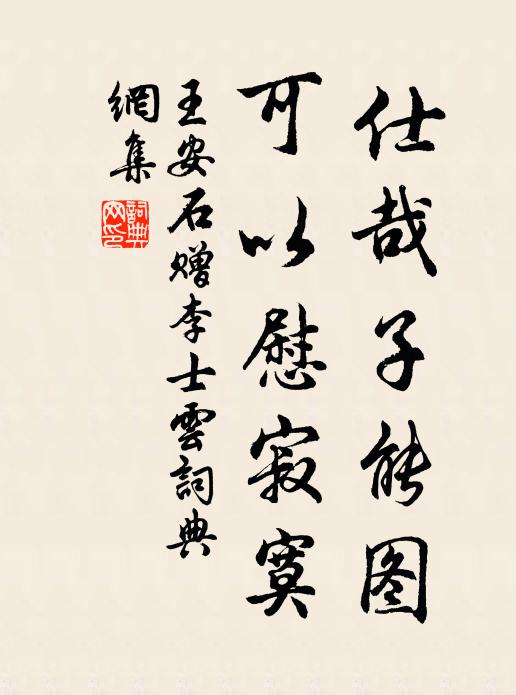 仕哉子能图
可以慰寂寞
王安石赠李士雲詞典
網集
詞典
网印